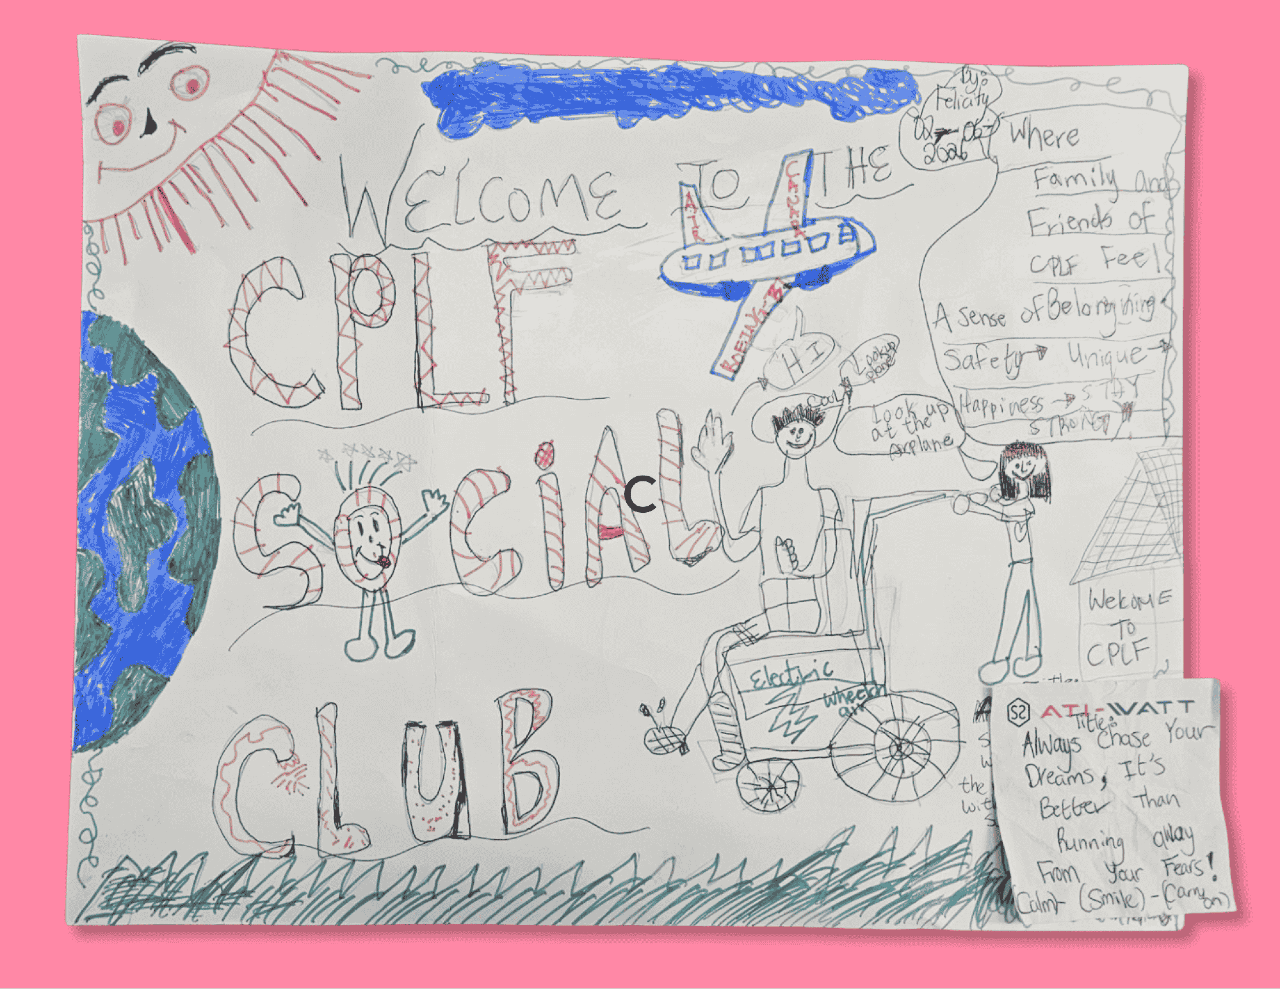 By:
Felicity
02-06-
2026
WELCOME TO THE
CPLF
SOCiAL
CLUB
AIR
CANADA
BOEING-
HI
Cool
Look up
plane
Look up
at the
Airplane
Where
Family and
Friends of
CPLF Feel
A sense of Belonging
Safety Unique
Happiness STAY
STRONG!
C
Electric
wheelch
air
WelcomE
TO
CPLF
the
with
S2 ATL-WATT
Title:
Always Chase Your
Dreams, It's
Better Than
Running away
From your Fears!
(Calm)-(Smile)-(Carry on)